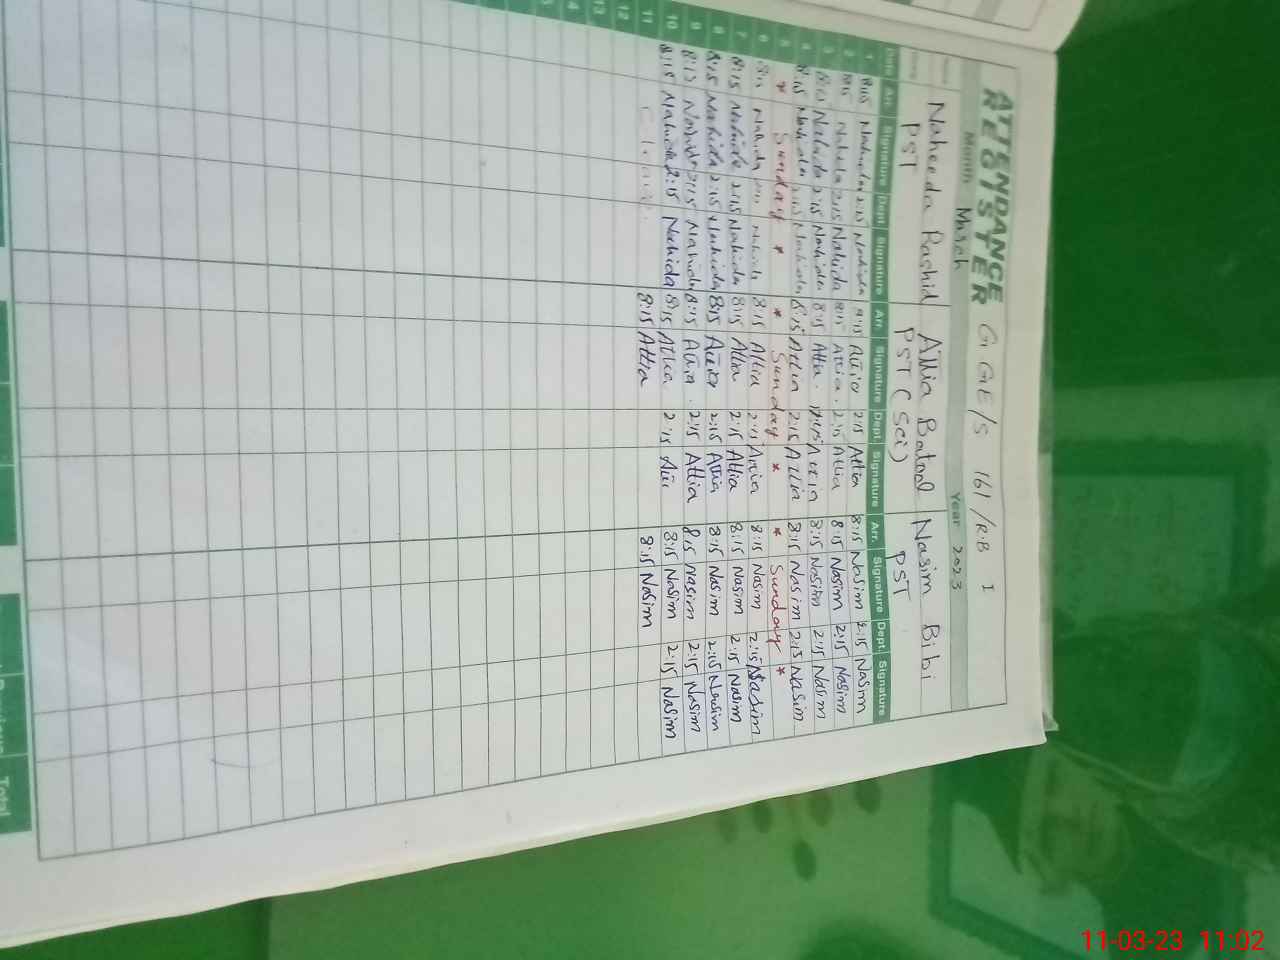 ATTENDANCE
REGISTER G.GE/S 161/R.B I
Month March Year 2023
Naheeda Rashid Attia Batool Nasim Bibi
PST PST (Sci) PST
Date Arr. Signature Dept. Signature Arr. Signature Dept. Signature Arr. Signature Dept. Signature
1 8:15 Nahida 2:15 Nahida 8:15 Attia 2:15 Attia 8:15 Nasim 2:15 Nasim
2 8:15 Nahida 2:15 Nahida 8:15 Attia 2:15 Attia 8:15 Nasim 2:15 Nasim
3 8:15 Nahida 2:15 Nahida 8:15 Attia Attia 8:15 Nasim 2:15 Nasim
4 8:15 Nahida 2:15 Nahida 8:15 Attia 2:15 Attia 8:15 Nasim 2:15 Nasim
5 * Sunday * * Sunday * * Sunday *
6 Nahida Nahida 8:15 Attia 2:15 Attia 8:15 Nasim 2:15 Nasim
7 8:15 Nahida 2:15 Nahida 8:15 Attia 2:15 Attia 8:15 Nasim 2:15 Nasim
8 8:15 Nahida 2:15 Nahida 8:15 Attia 2:15 Attia 8:15 Nasim 2:15 Nasim
9 Nahida 2:15 Nahida 8:15 Attia 2:15 Attia 8:15 Nasim 2:15 Nasim
10 8:15 Nahida 2:15 Nahida 8:15 Attia 2:15 Attia 8:15 Nasim 2:15 Nasim
11 8:15 Attia 8:15 Nasim
12
13
14
Total
11-03-23 11:02